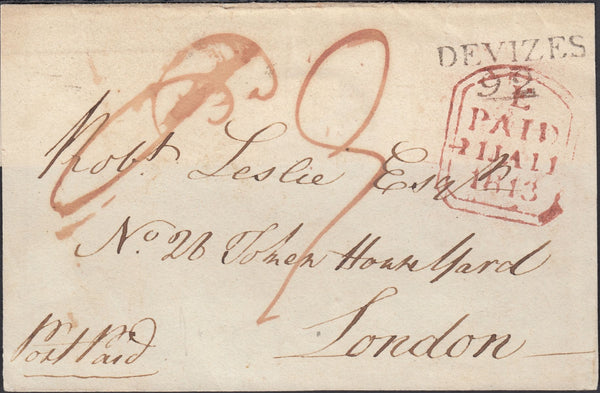 DEVIZES
92
L
PAID
11 JA 11
1813
Pd 9
Robt. Leslie Esqr.
No 28 Token House Yard
London
Post Paid